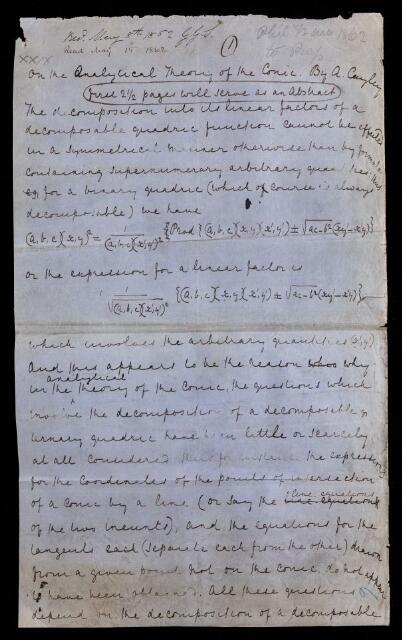 Recd. May 8th. 1862 G.G.S.
Read May 15 1862.
①
Phil Trans 1862
XXIX
On the Analytical Theory of the Conic. By A. Cayley
First 2½ pages will serve as an Abstract
The decomposition into its linear factors of a
decomposable quadric function cannot be effected
in a symmetrical manner otherwise than by formulæ
containing supernumerary arbitrary quantities; thus
eg, for a binary quadric (which of course is always
decomposable) we have
(a, b, c)(x, y)² = 1/(a, b, c)(x', y')² {Prod {(a, b, c)(x, y)(x', y') ± √ac-b² (xy'-x'y)}
or the expression for a linear factor is
1/√(a, b, c)(x', y')² {(a, b, c)(x, y)(x', y') ± √ac-b² (xy'-x'y)}
which involves the arbitrary quantities (x', y')
And this appears to be the reason why
analytical
in the theory of the Conic, the questions which
involve the decomposition of a decomposable
ternary quadric have been little or scarcely
at all considered thus for instance the expressions
for the coordinates of the points of intersection
of a conic by a line (or say the line equations
of the two ineunts), and the equations for the
tangents each (separate each from the other) drawn
from a given point not on the conic, do not appear
to have been obtained. All these questions
depend on the decomposition of a decomposable